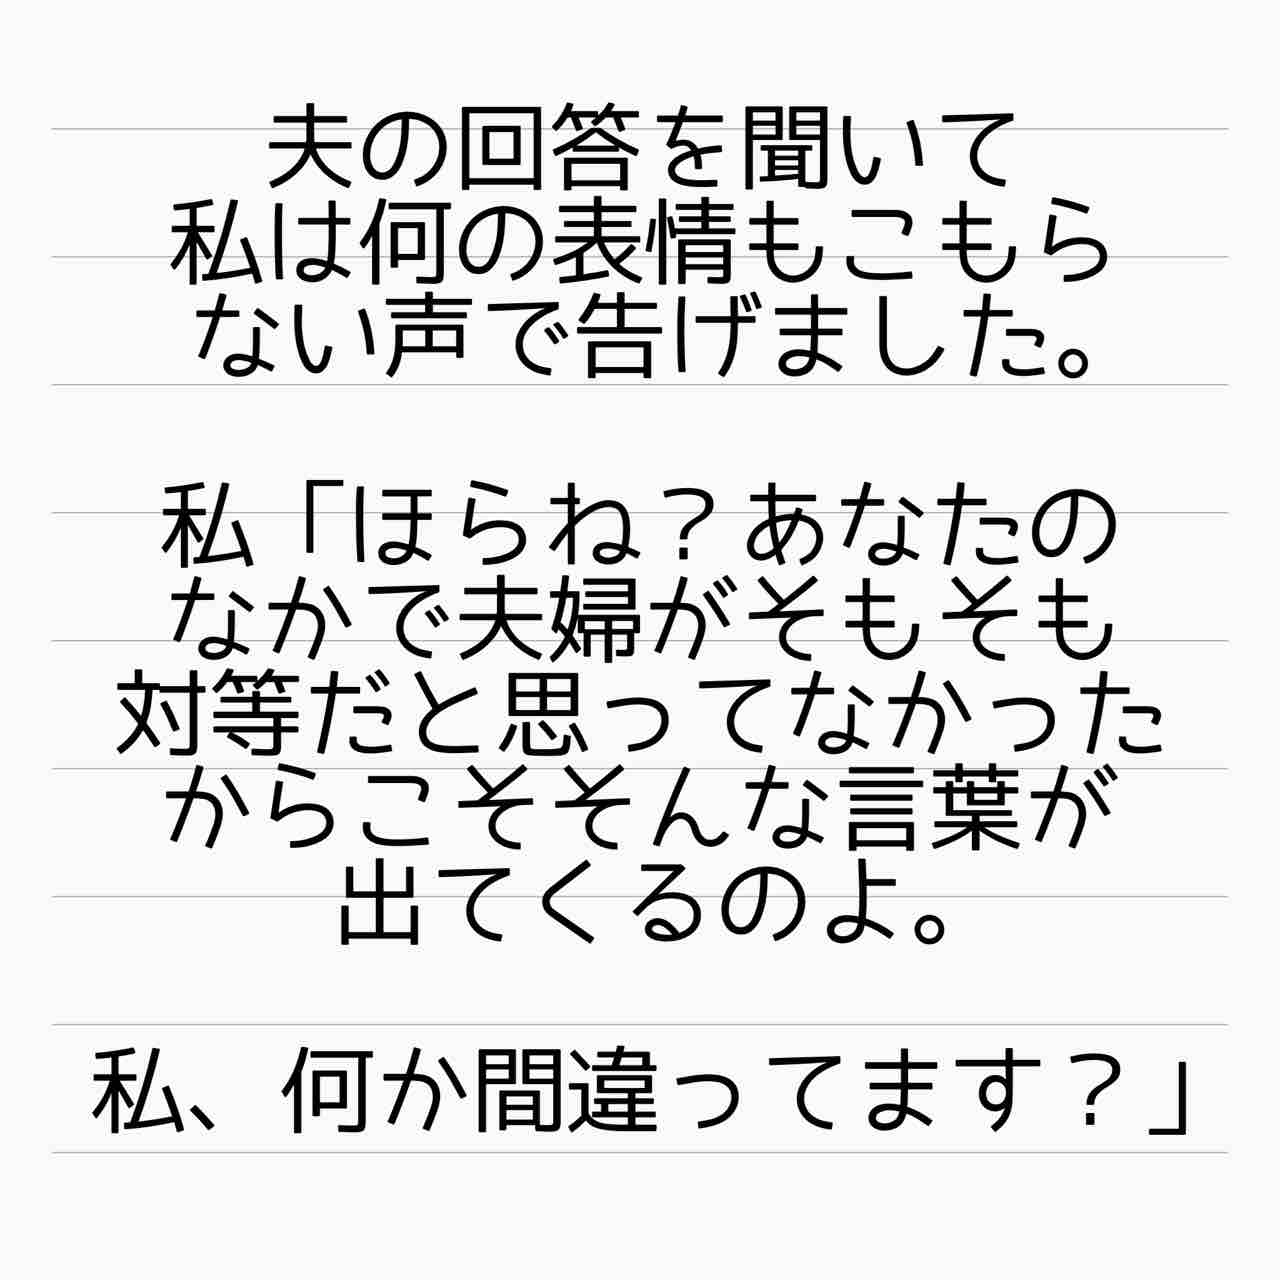 夫の回答を聞いて
私は何の表情もこもら
ない声で告げました。
私「ほらね？あなたの
なかで夫婦がそもそも
対等だと思ってなかった
からこそそんな言葉が
出てくるのよ。
私、何か間違ってます？」